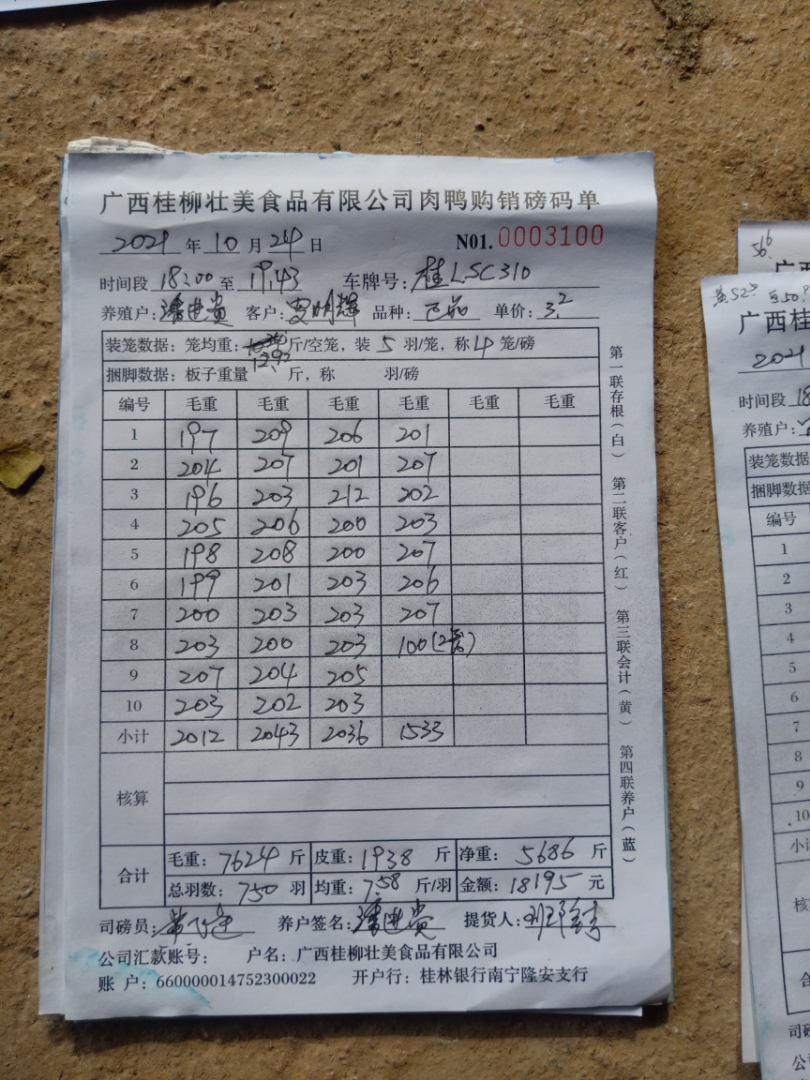 广西桂柳壮美食品有限公司肉鸭购销磅码单
2021 年 10 月 24 日 N01. 0003100
时间段 18:00 至 19:43 车牌号: 桂LSC310
养殖户: 潘进贵 客户: 明辉 品种: 单价: 3.2
装笼数据: 笼均重: 12.92 斤/空笼, 装 5 羽/笼, 称 4 笼/磅
捆脚数据: 板子重量 斤, 称 羽/磅
编号 毛重 毛重 毛重 毛重 毛重 毛重
1 197 209 206 201
2 204 207 201 207
3 196 203 212 202
4 205 206 200 203
5 198 208 200 207
6 199 201 203 206
7 200 203 203 207
8 203 200 203 100(2笼)
9 207 204 205
10 203 202 203
小计 2012 2043 2036 1533
核算
合计 毛重: 7624 斤 皮重: 1938 斤 净重: 5686 斤
总羽数: 750 羽 均重: 7.58 斤/羽 金额: 18195 元
司磅员: 养户签名: 潘进贵 提货人:
公司汇款账号: 户名: 广西桂柳壮美食品有限公司
账 户: 660000014752300022 开户行: 桂林银行南宁隆安支行
第一联存根(白) 第二联客户(红) 第三联会计(黄) 第四联养户(蓝)
广西桂
2021
时间段 18
养殖户:
装笼数据
捆脚数据
编号
1
2
3
4
5
6
7
8
9
10
小计
核
合
司磅
公